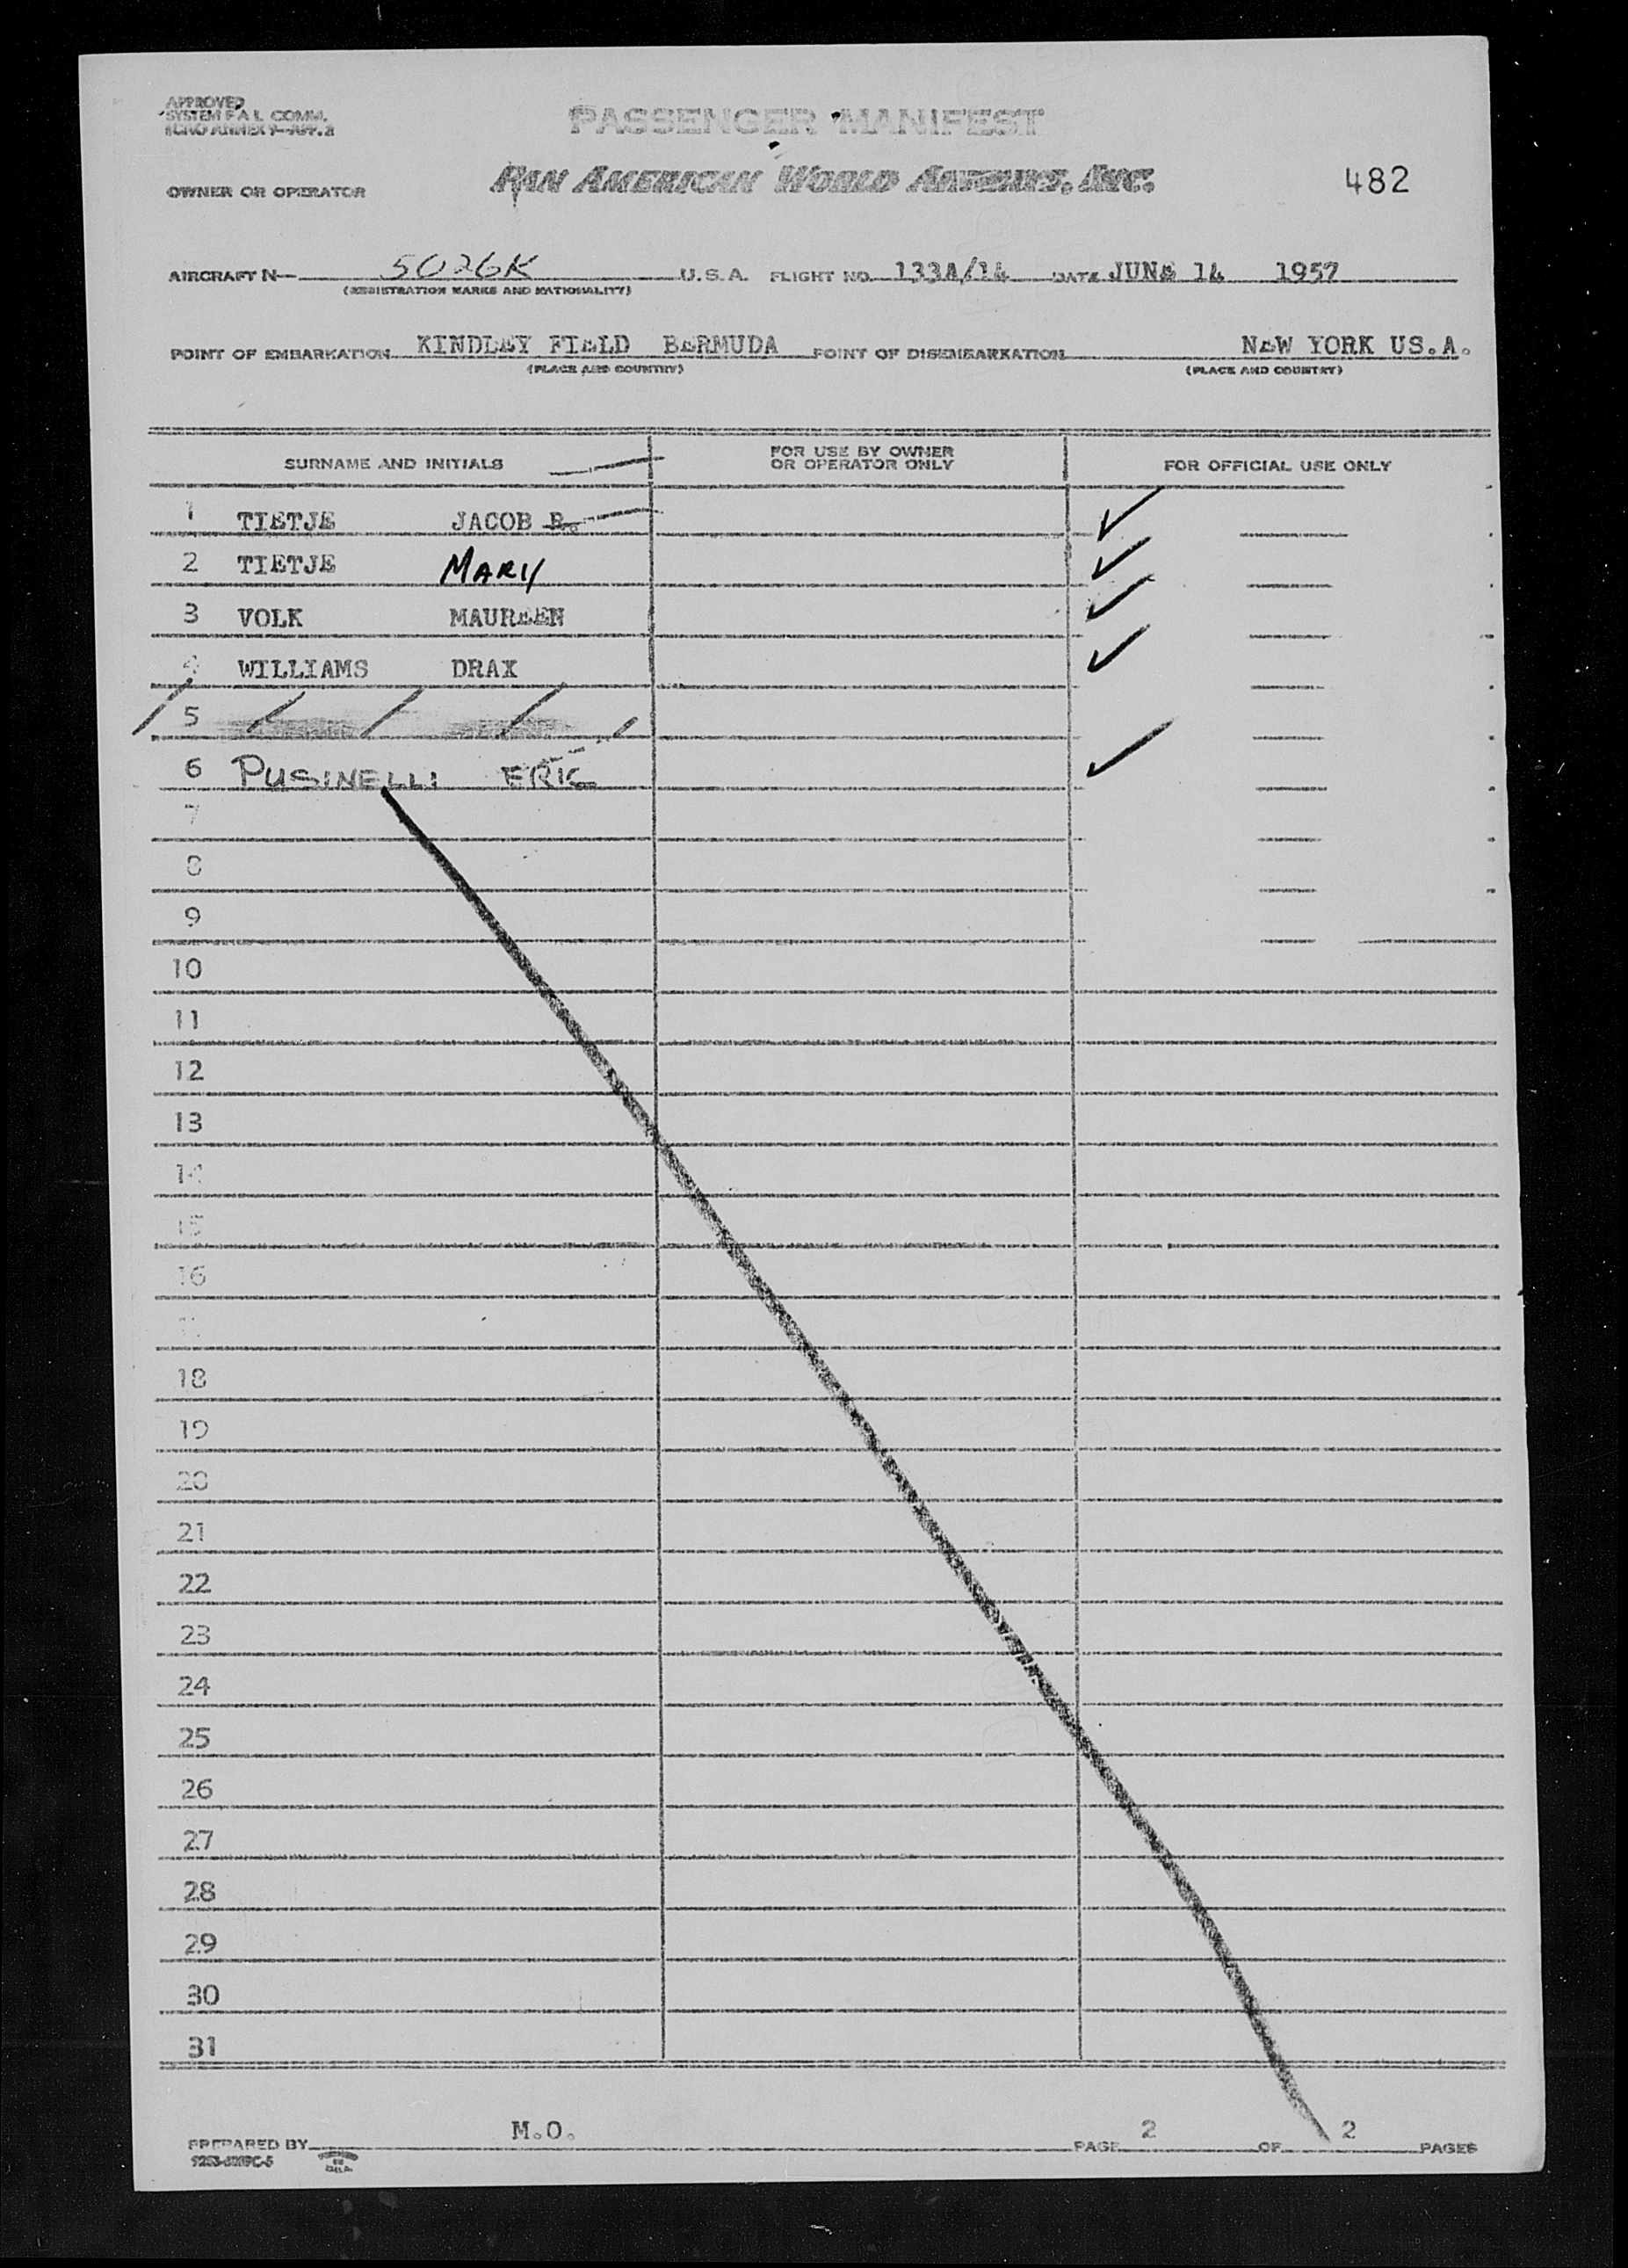 APPROVED
SYSTEM F A L COMM.
PASSENGER MANIFEST
OWNER OR OPERATOR PAN AMERICAN WORLD AIRWAYS, INC. 482
AIRCRAFT N— 5026K U.S.A. FLIGHT NO. 133A/14 DATE JUNE 14 1957
(REGISTRATION MARKS AND NATIONALITY)
POINT OF EMBARKATION KINDLEY FIELD BERMUDA POINT OF DISEMBARKATION NEW YORK US.A.
(PLACE AND COUNTRY) (PLACE AND COUNTRY)
SURNAME AND INITIALS FOR USE BY OWNER OR OPERATOR ONLY FOR OFFICIAL USE ONLY
1 TIETJE JACOB B.
2 TIETJE MARY
3 VOLK MAUREEN
4 WILLIAMS DRAX
5
6 PUSINELLI ERIC
7
8
9
10
11
12
13
14
15
16
18
19
20
21
22
23
24
25
26
27
28
29
30
31
PREPARED BY M.O. PAGE 2 OF 2 PAGES